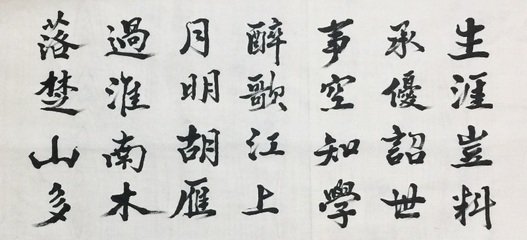 生涯豈料
承優詔世
事空知學
醉歌江上
月明胡雁
過淮南木
落楚山多